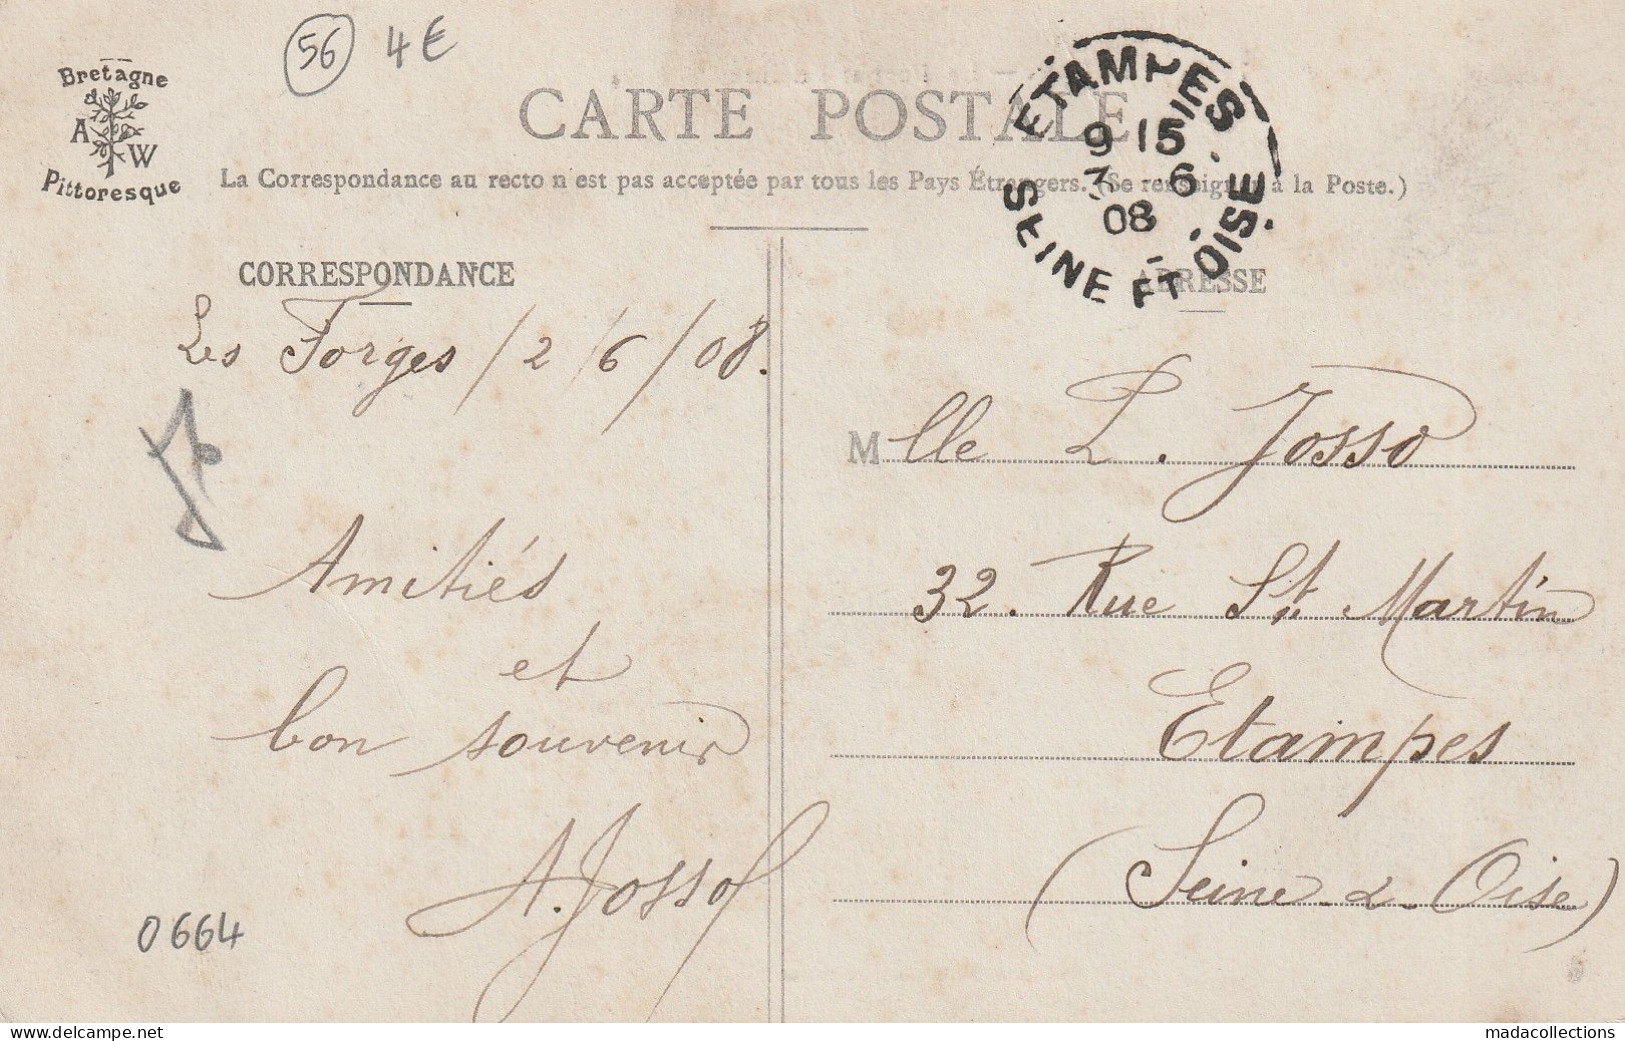 56 4€
Bretagne
A W
Pittoresque
CARTE POSTALE
La Correspondance au recto n'est pas acceptée par tous les Pays Étrangers. (Se renseigner à la Poste.)
ETAMPES
9 15
3 6
08
SEINE ET OISE
CORRESPONDANCE
ADRESSE
Les Forges / 2 / 6 / 08.
Amitiés
et
bon souvenir
A. Josso
0664
Mlle L. Josso
32. Rue St. Martin
Etampes
(Seine-&-Oise)
www.delcampe.net
madacollections